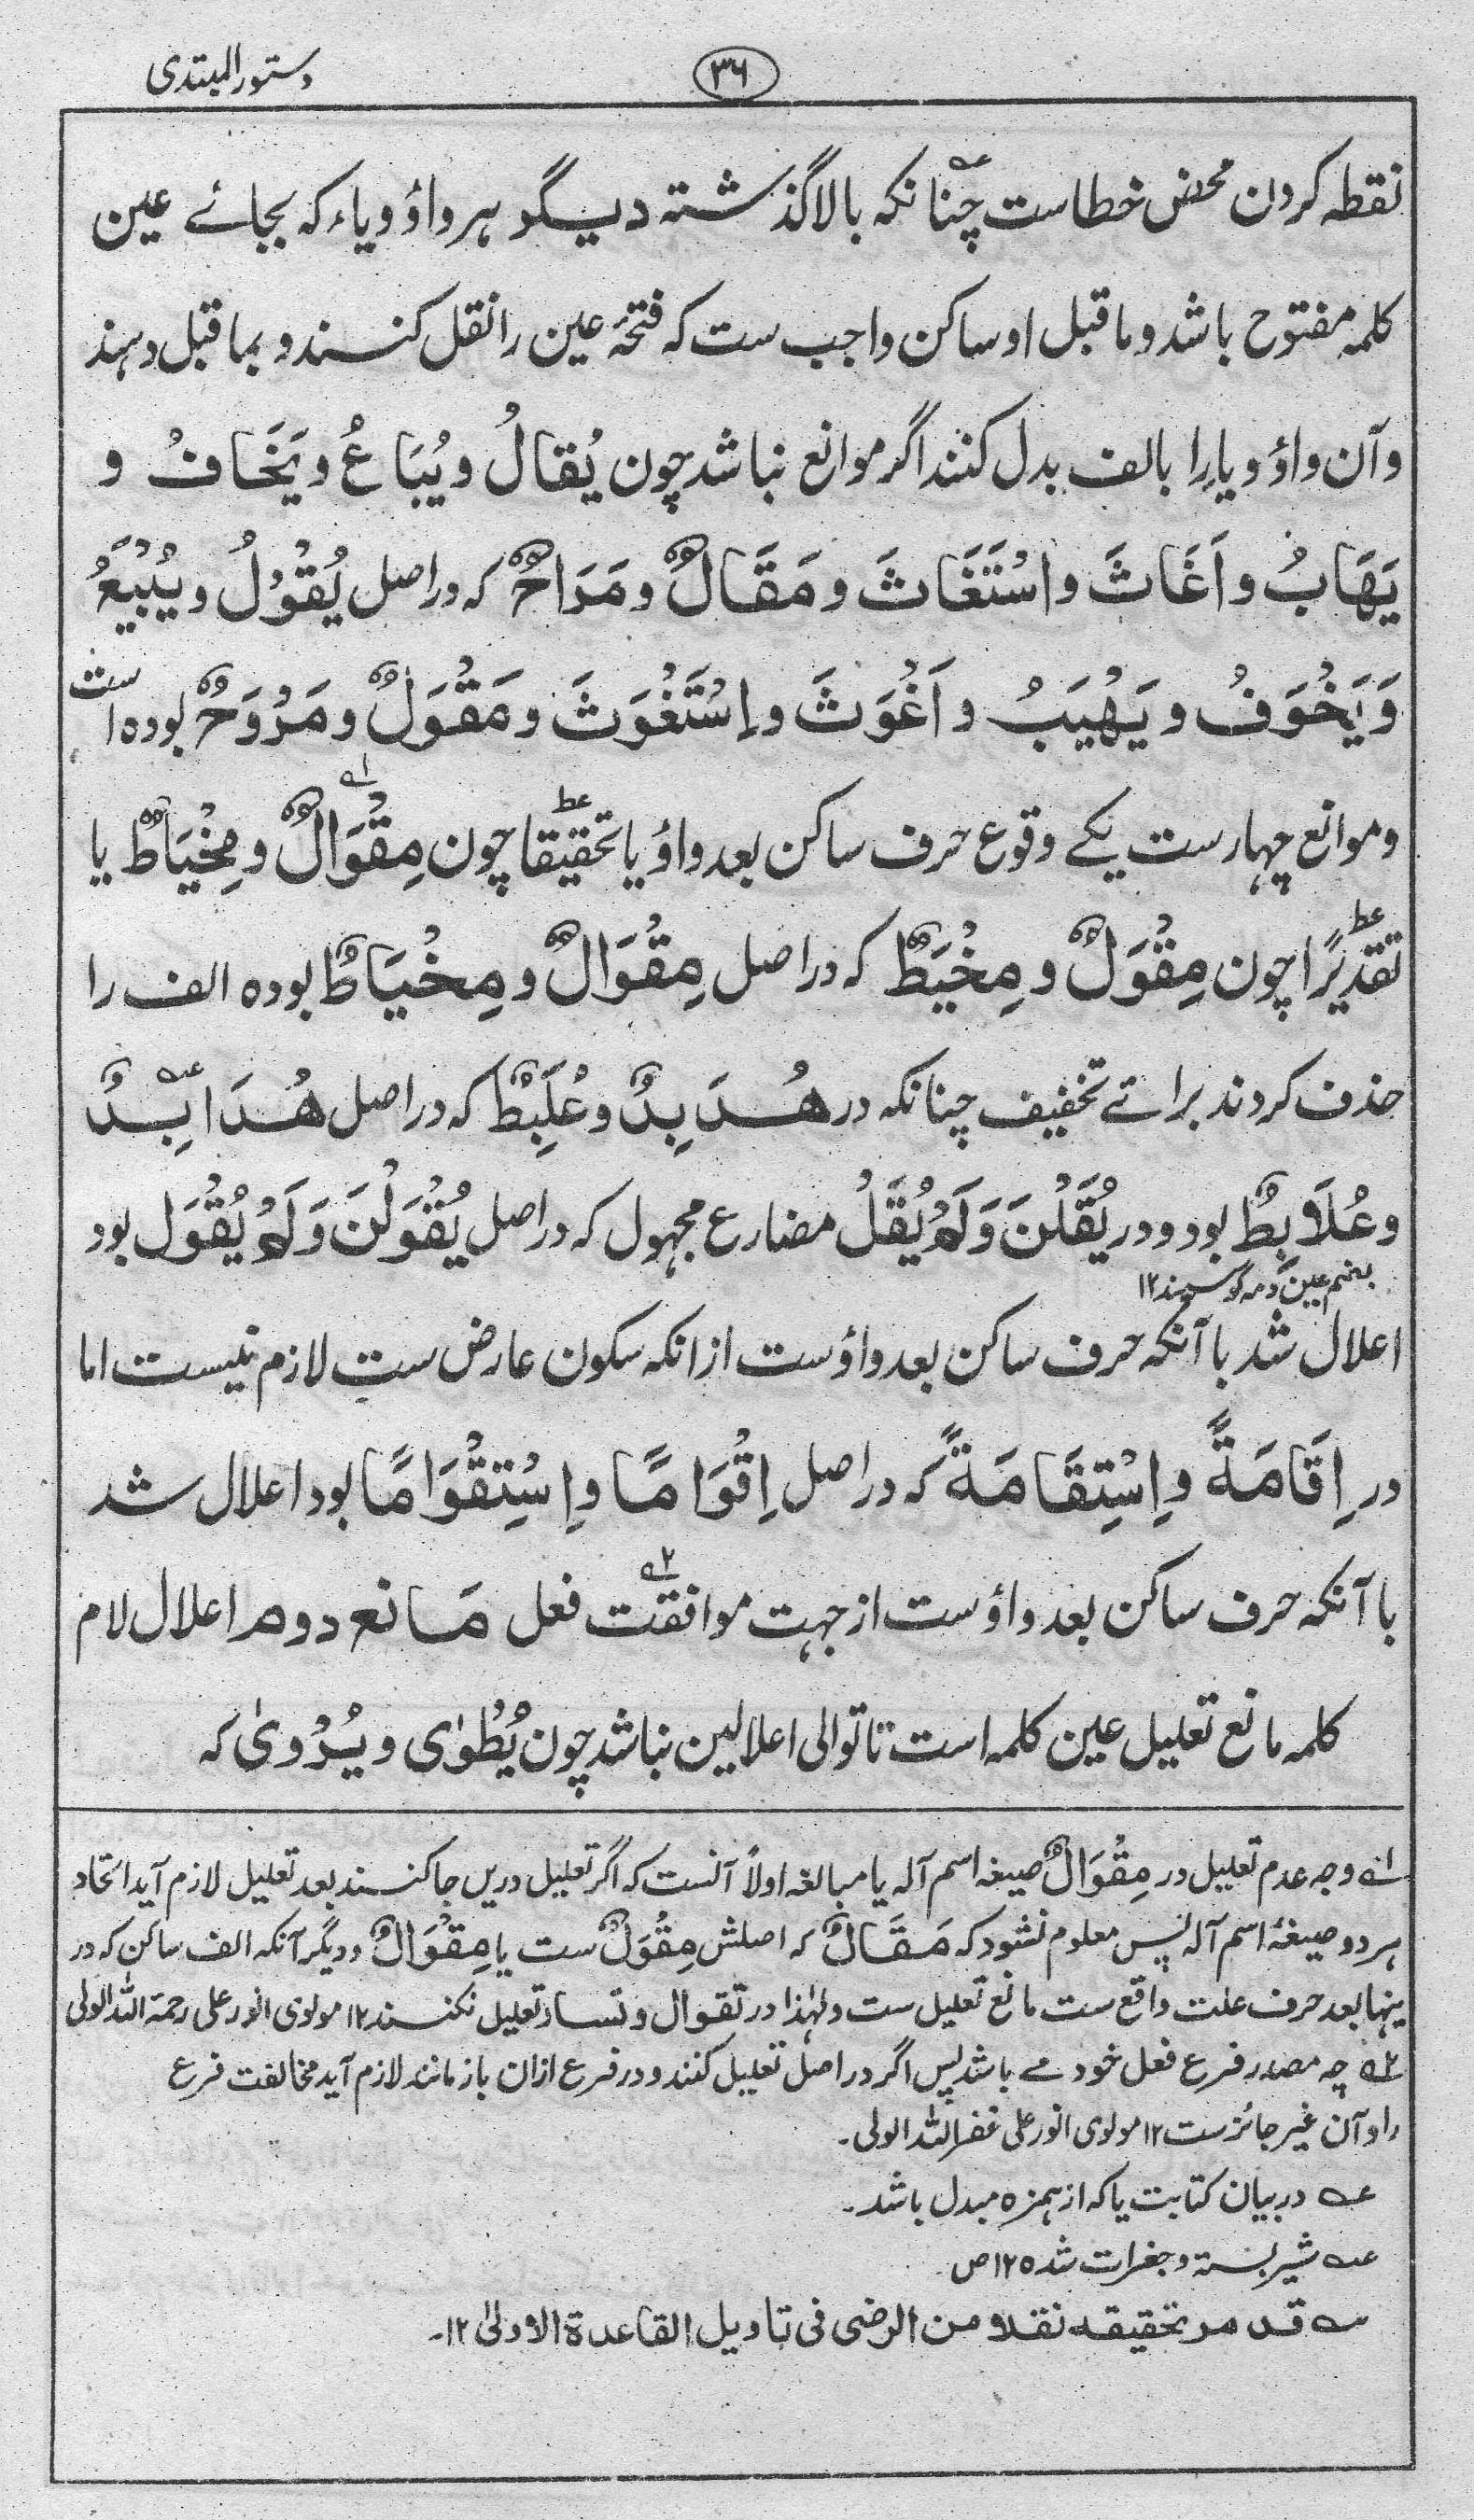 دستور المبتدی
۳۶
نقطہ کردن محض خطاست چنانکہ بالا گذشتہ دیگر ہر واؤ و یاء کہ بجائے عین
کلمہ مفتوح باشد و ماقبل او ساکن واجب ست کہ فتحۂ عین را نقل کنند و بماقبل دہند
و آن واؤ و یا را بالف بدل کنند اگر موانع نباشد چون یُقَالُ و یُبَاعُ و یَخَافُ و
یَهَابُ و اَغَاثَ و اسْتَغَاثَ و مَقَالٌ و مَرَاحٌ کہ در اصل یُقْوَلُ و یُبْیَعُ
وَ یَخْوَفُ و یَهْیَبُ و اَغْوَثَ و اِسْتَغْوَثَ و مَقْوَلٌ و مَرْوَحٌ بودہ است
و موانع چہارست یکے وقوع حرف ساکن بعد واؤ یا تحقیقا چون مِقْوَالٌ و مِخْیَاطٌ یا
تقدیرًا چون مِقْوَلٌ و مِخْیَطٌ کہ در اصل مِقْوَالٌ و مِخْیَاطٌ بودہ الف را
حذف کردند برائے تخفیف چنانکہ در هُدَبِدٌ و عُلَبِطٌ کہ در اصل هُدَابِدٌ
و عُلَابِطٌ بود و در یُقَلْنَ وَ لَمْ یُقَلْ مضارع مجہول کہ در اصل یُقْوَلْنَ وَ لَمْ یُقْوَلْ بود
بضم عین رمہ گوسپند ۱۲
اعلال شد با آنکہ حرف ساکن بعد واؤست از انکہ سکون عارض ست لازم نیست اما
در اِقَامَةً و اِسْتِقَامَةً کہ در اصل اِقْوَامًا و اِسْتِقْوَامًا بود اعلال شد
با آنکہ حرف ساکن بعد واؤست از جہت موافقت فعل مانع دوم اعلال لام
کلمہ مانع تعلیل عین کلمہ است تا توالی اعلالین نباشد چون یُطْوٰی و یُرْوٰی کہ
۱؎ وجہ عدم تعلیل در مِقْوَالٌ صیغہ اسم آلہ یا مبالغہ اولاً آنست کہ اگر تعلیل دریں جا کنند بعد تعلیل لازم آید اتحاد
ہر دو صیغۂ اسم آلہ پس معلوم نشود کہ مَقَالٌ کہ اصلش مِقْوَلٌ ست یا مِقْوَالٌ و دیگر آنکہ الف ساکن کہ در
ینہا بعد حرف علت واقع ست مانع تعلیل ست ولہٰذا در تقوال و تسیار تعلیل نکنند ۱۲ مولوی انور علی رحمۃ اللہ الولی
۲؎ چہ مصدر فرع فعل خود مے باشد پس اگر در اصل تعلیل کنند و در فرع ازان باز مانند لازم آید مخالفت فرع
را و آن غیر جائز ست ۱۲ مولوی انور علی غفرلہ اللہ الولی۔
عہ در بیان کتابت یا کہ از ہمزہ مبدل باشد۔
عہ شیر بستہ و جغرات شدہ ۱۲ ص
قد مر تحقیقہ نقلا من الرضی فی تاویل القاعدة الاولیٰ ۱۲۔